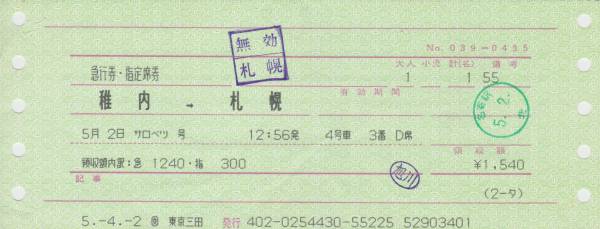 無効
札幌
No. 039-0435
大人 小児 計(名) 備考
急行券・指定席券 1 1 55
有効期間
稚内 → 札幌
5.2.
5月 2日 サロベツ 号 12:56発 4号車 3番 D席
領収額
領収額内訳:急 1240・指 300 ¥1,540
旭川
記事
(2-タ)
5.-4.-2 東京三田 発行 402-0254430-55225 52903401